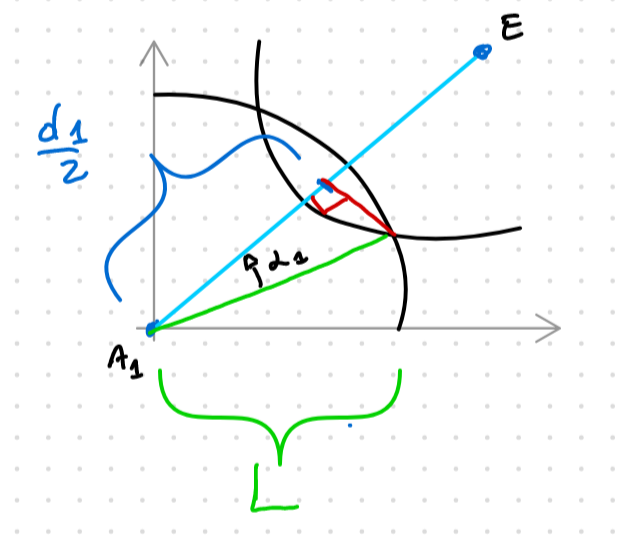 E
d1
2
α1
A1
L